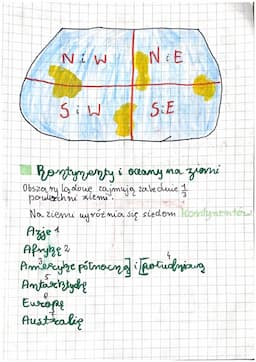 N i W N i E
S i W S i E
Kontynenty i oceany na ziemi
Obszary lądowe zajmują zaledwie 1/3
powierzchni ziemi.
Na ziemi wyróżnia się siedem kontynentów
Azję 1
Afrykę 2
Amerykę północną 3 i południową 4
Antarktydę 5
Europę 6
Australię 7